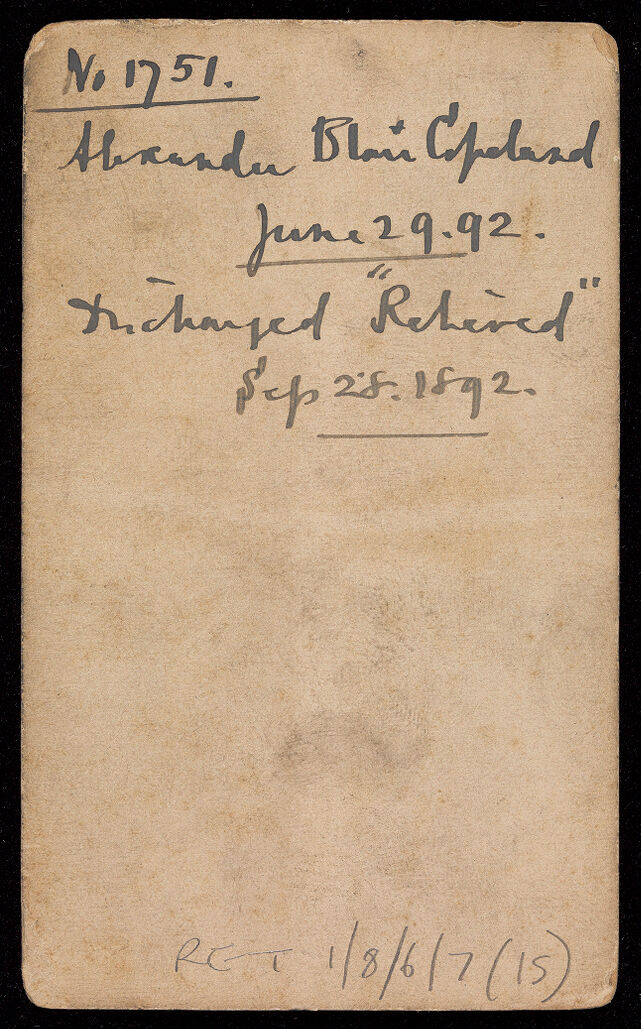 No 1751.
Alexander Blair Copeland
June 29.92.
Discharged "Relieved"
Sep 28. 1892.
RET 1/8/6/7(15)